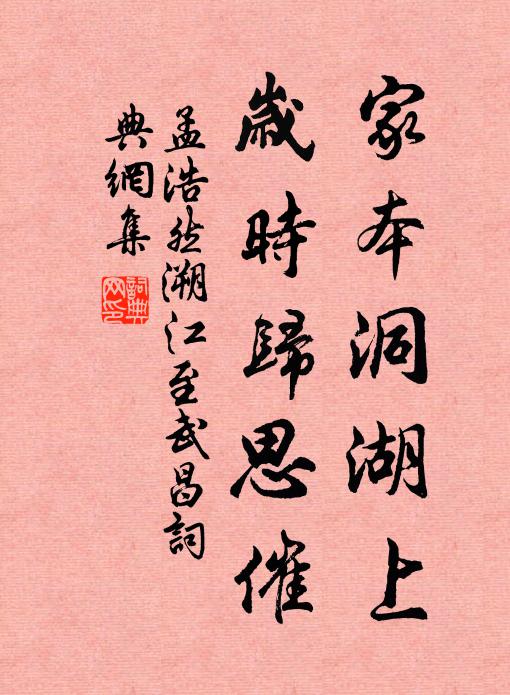 家本洞湖上
歲時歸思催
孟浩然溯江至武昌詞
典網集
詞典
网印